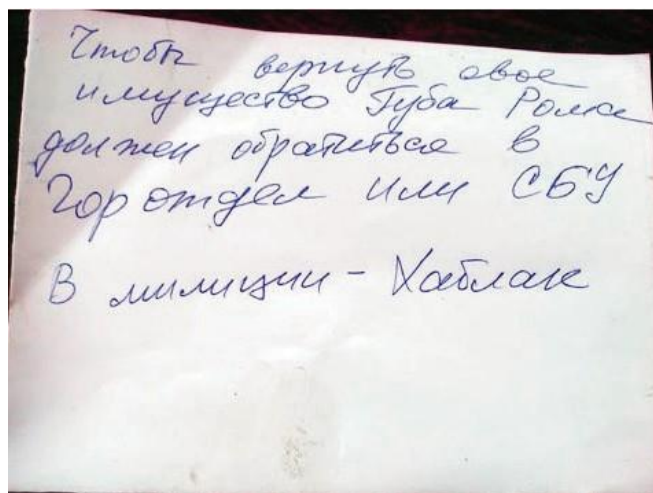 Чтобы вернуть свое
имущество Губа Рома
должен обратиться в
Горотдел или СБУ
В милиции - Хаблак